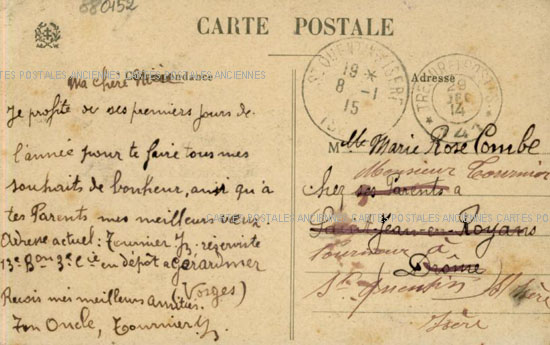 880152
CARTE POSTALE
CARTES POSTALES ANCIENNES CARTES POSTALES ANCIENNES
Correspondance
Adresse
Ma chère Nièce
Je profite de ces premiers jours de
l'année pour te faire tous mes
souhaits de bonheur, ainsi qu'à
tes Parents mes meilleurs vœux
Adresse actuel: Tournier Jh, réserviste
13e Bon 3e Cie en dépôt à Gérardmer
(Vosges)
Reçois mes meilleurs Amitiés.
Ton Oncle, Tournier Jh
ST QUENTIN ISERE
19 *
8 - 1
15
TRESOR ET POSTES
29
DEC
14
Mlle Marie Rose Combe
Monsieur Tournier
Chez ses Parents à
Saint-Jean-en-Royans
Fourneur à
Drôme
St Quentin s/Isère
Isère